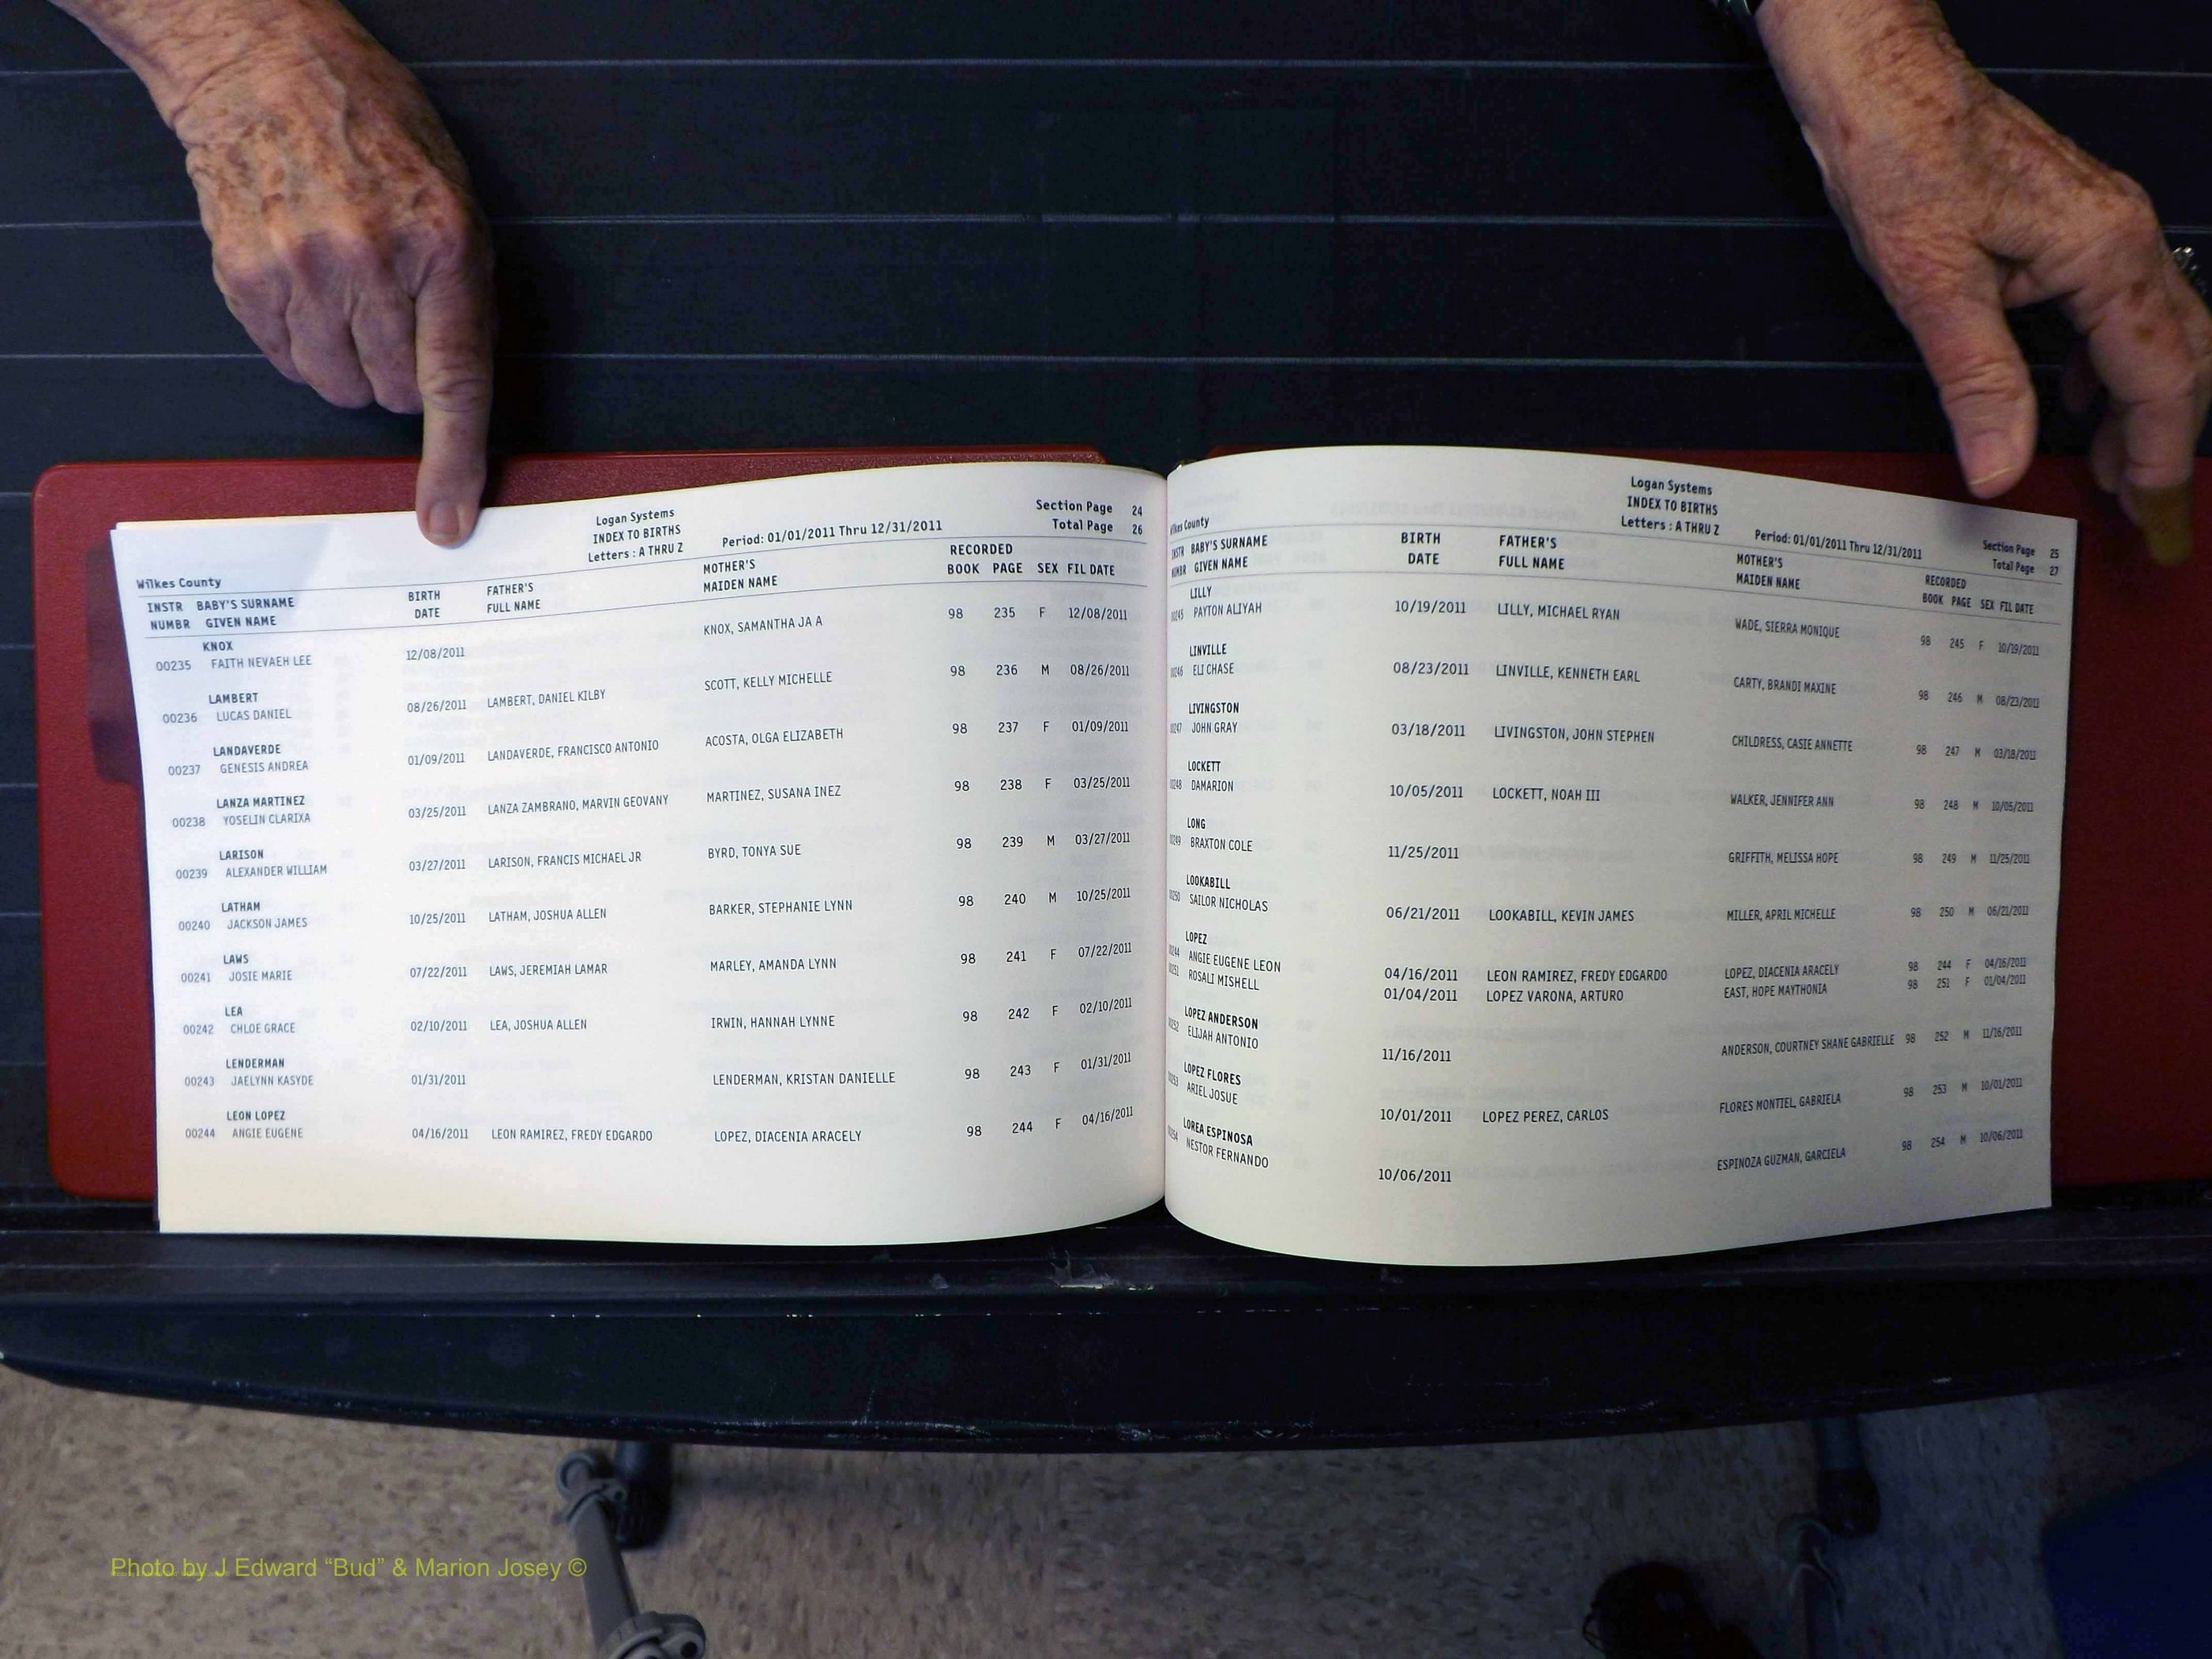 Logan Systems
INDEX TO BIRTHS
Letters : A THRU Z
Period: 01/01/2011 Thru 12/31/2011
Section Page 24
Total Page 26
Wilkes County
INSTR BABY'S SURNAME BIRTH FATHER'S MOTHER'S RECORDED
NUMBR GIVEN NAME DATE FULL NAME MAIDEN NAME BOOK PAGE SEX FIL DATE
KNOX
00235 FAITH NEVAEH LEE 12/08/2011 KNOX, SAMANTHA JA A 98 235 F 12/08/2011
LAMBERT
00236 LUCAS DANIEL 08/26/2011 LAMBERT, DANIEL KILBY SCOTT, KELLY MICHELLE 98 236 M 08/26/2011
LANDAVERDE
00237 GENESIS ANDREA 01/09/2011 LANDAVERDE, FRANCISCO ANTONIO ACOSTA, OLGA ELIZABETH 98 237 F 01/09/2011
LANZA MARTINEZ
00238 YOSELIN CLARIXA 03/25/2011 LANZA ZAMBRANO, MARVIN GEOVANY MARTINEZ, SUSANA INEZ 98 238 F 03/25/2011
LARISON
00239 ALEXANDER WILLIAM 03/27/2011 LARISON, FRANCIS MICHAEL JR BYRD, TONYA SUE 98 239 M 03/27/2011
LATHAM
00240 JACKSON JAMES 10/25/2011 LATHAM, JOSHUA ALLEN BARKER, STEPHANIE LYNN 98 240 M 10/25/2011
LAWS
00241 JOSIE MARIE 07/22/2011 LAWS, JEREMIAH LAMAR MARLEY, AMANDA LYNN 98 241 F 07/22/2011
LEA
00242 CHLOE GRACE 02/10/2011 LEA, JOSHUA ALLEN IRWIN, HANNAH LYNNE 98 242 F 02/10/2011
LENDERMAN
00243 JAELYNN KASYDE 01/31/2011 LENDERMAN, KRISTAN DANIELLE 98 243 F 01/31/2011
LEON LOPEZ
00244 ANGIE EUGENE 04/16/2011 LEON RAMIREZ, FREDY EDGARDO LOPEZ, DIACENIA ARACELY 98 244 F 04/16/2011
Logan Systems
INDEX TO BIRTHS
Letters : A THRU Z
Period: 01/01/2011 Thru 12/31/2011
Section Page 25
Total Page 27
County
BABY'S SURNAME BIRTH FATHER'S MOTHER'S RECORDED
GIVEN NAME DATE FULL NAME MAIDEN NAME BOOK PAGE SEX FIL DATE
LILLY
PAYTON ALIYAH 10/19/2011 LILLY, MICHAEL RYAN WADE, SIERRA MONIQUE 98 245 F 10/19/2011
LINVILLE
ELI CHASE 08/23/2011 LINVILLE, KENNETH EARL CARTY, BRANDI MAXINE 98 246 M 08/23/2011
LIVINGSTON
JOHN GRAY 03/18/2011 LIVINGSTON, JOHN STEPHEN CHILDRESS, CASIE ANNETTE 98 247 M 03/18/2011
LOCKETT
DAMARION 10/05/2011 LOCKETT, NOAH III WALKER, JENNIFER ANN 98 248 M 10/05/2011
LONG
BRAXTON COLE 11/25/2011 GRIFFITH, MELISSA HOPE 98 249 M 11/25/2011
LOOKABILL
SAILOR NICHOLAS 06/21/2011 LOOKABILL, KEVIN JAMES MILLER, APRIL MICHELLE 98 250 M 06/21/2011
LOPEZ
ANGIE EUGENE LEON 04/16/2011 LEON RAMIREZ, FREDY EDGARDO LOPEZ, DIACENIA ARACELY 98 244 F 04/16/2011
ROSALI MISHELL 01/04/2011 LOPEZ VARONA, ARTURO EAST, HOPE MAYTHONIA 98 251 F 01/04/2011
LOPEZ ANDERSON
ELIJAH ANTONIO 11/16/2011 ANDERSON, COURTNEY SHANE GABRIELLE 98 252 M 11/16/2011
LOPEZ FLORES
ARIEL JOSUE 10/01/2011 LOPEZ PEREZ, CARLOS FLORES MONTIEL, GABRIELA 98 253 M 10/01/2011
LOREA ESPINOSA
NESTOR FERNANDO 10/06/2011 ESPINOZA GUZMAN, GARCIELA 98 254 M 10/06/2011
Photo by J Edward “Bud” & Marion Josey ©